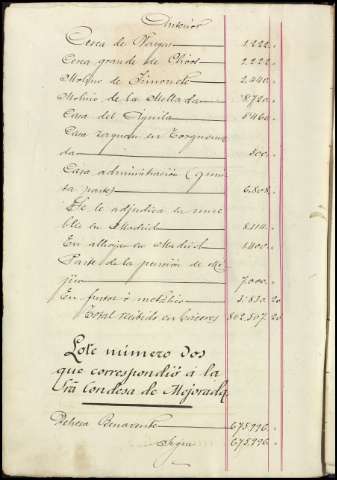 Anterior
Cerca de Vargas 1.222.
Cerca grande de Chicos 2.222.
Molino de Simonete 2.440.
Molino de la Mellada 8720.
Casa del Aguila 1460.
Casa zaguan en Torquema
da 800.
Casa administración (quin
ta parte) 6.808.
Se le adjudica en mue
bles en Madrid 8114.
En alhajas en Madrid 1400.
Parte de la pensión de
7.000.
En fincas ó metálico 20
Total recibido en 802.507 20
Lote número dos
que correspondió á la
Sra Condesa de Mejorada
Dehesa Benavente 675.996.
Sigue 675.996.